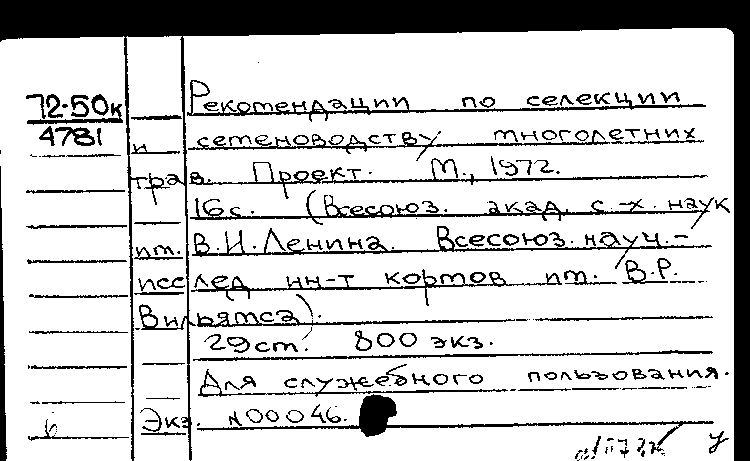 72-50к
4781
Рекомендации по селекции
и семеноводству многолетних
трав. Проект. М., 1972.
16с. (Всесоюз. акад. с.-х. наук
им. В.И.Ленина. Всесоюз. науч.-
исслед ин-т кормов им. В.Р.
Вильямса).
29см. 800 экз.
Для служебного пользования.
б Экз. N00046.